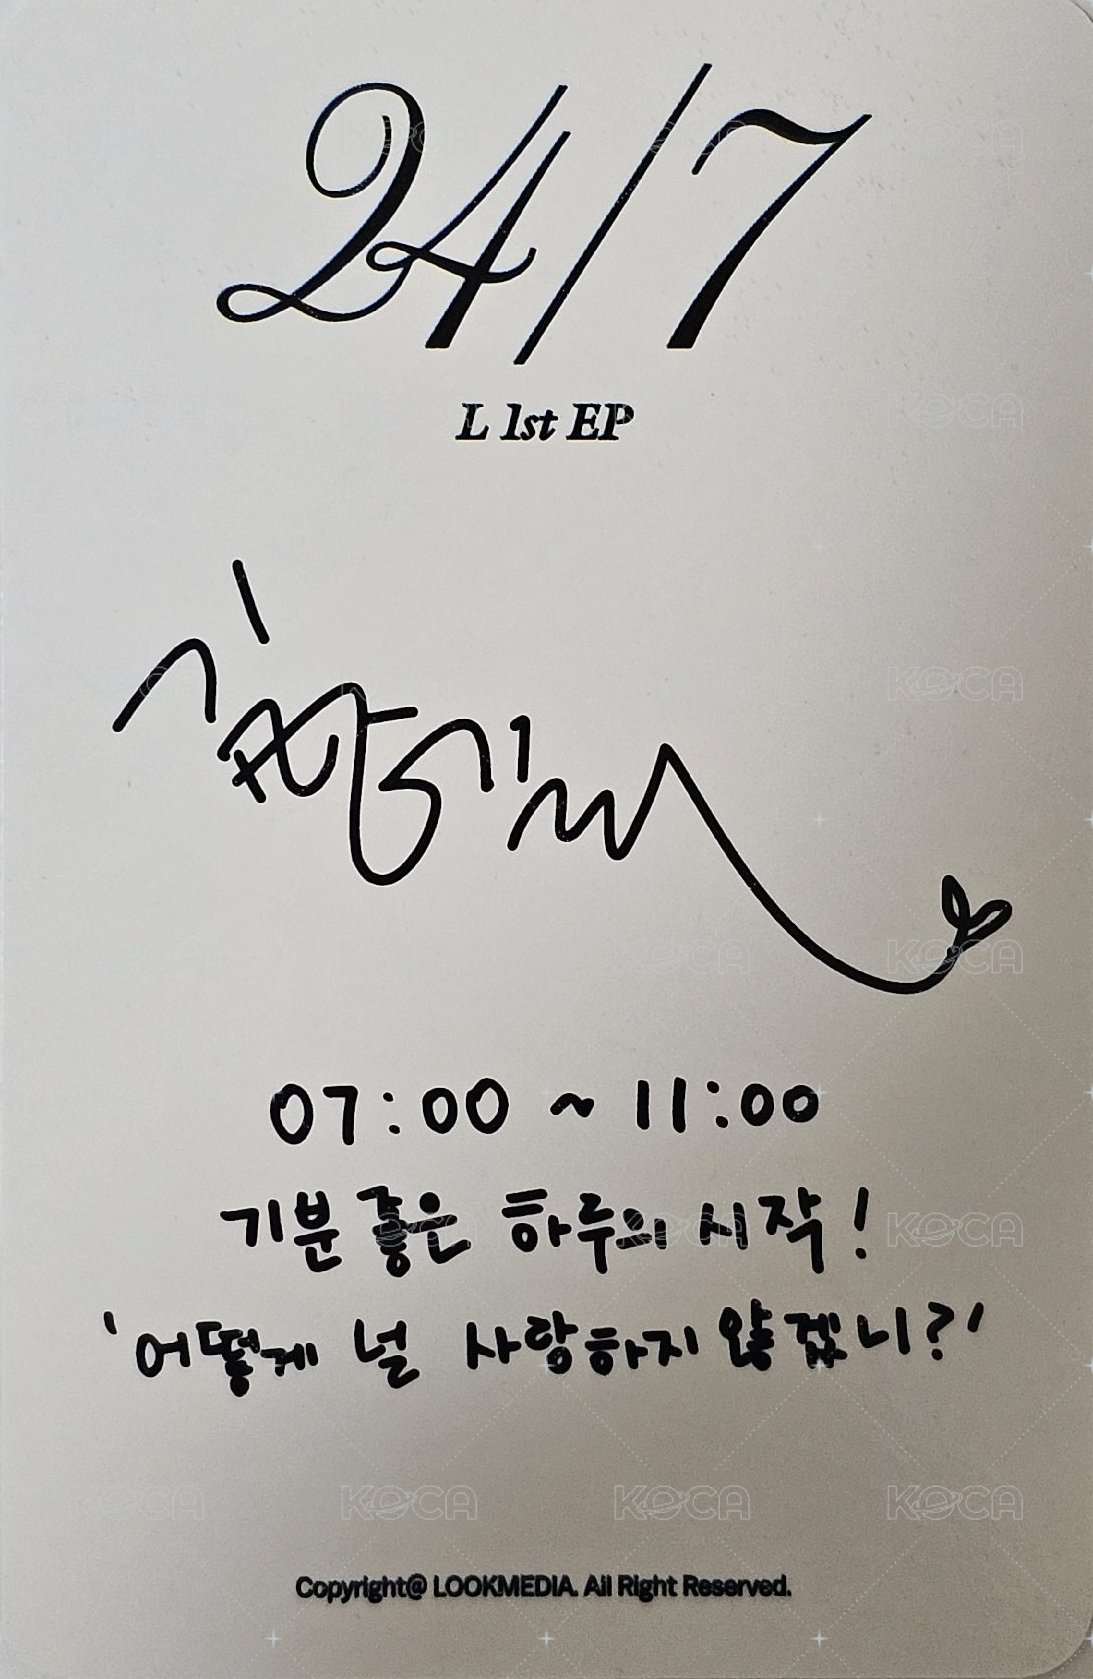 24/7
L 1st EP
07:00 ~ 11:00
기분 좋은 하루의 시작!
'어떻게 널 사랑하지 않겠니?'
Copyright@ LOOKMEDIA. All Right Reserved.
KOCA